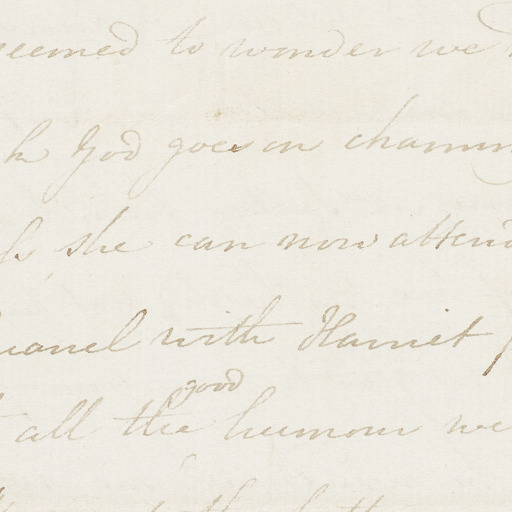 seemed to wonder we
God goes on charmin
she can now attend
quarrel with Harriet
good
all the humour we